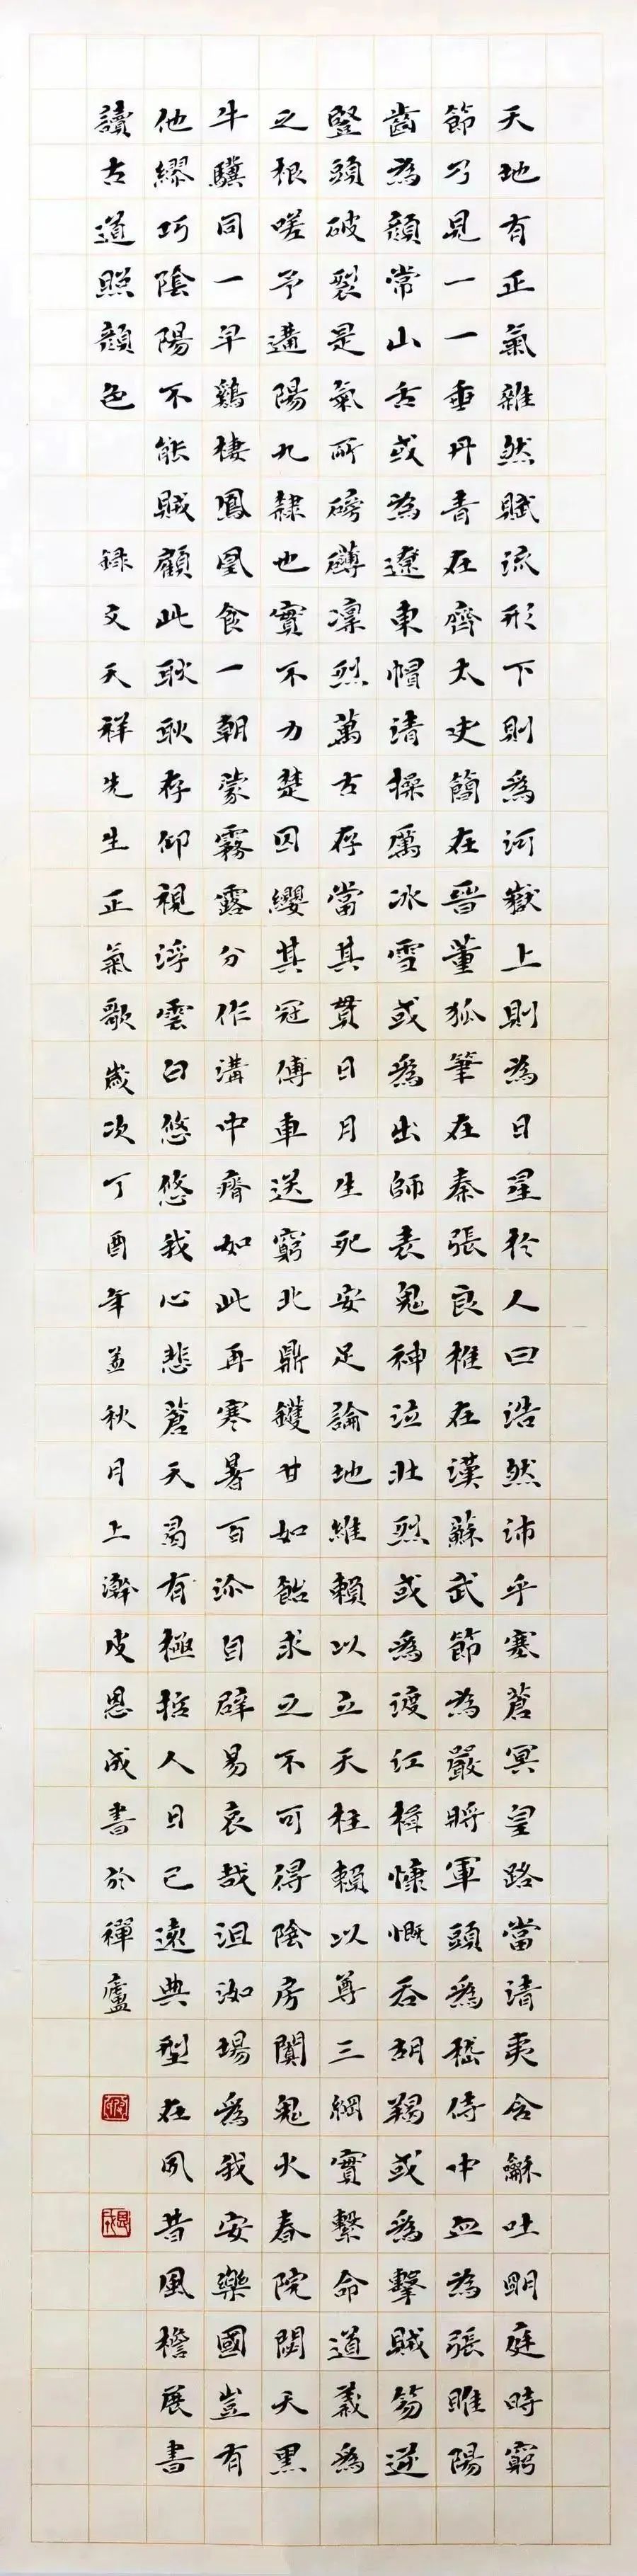 天地有正氣雜然賦流形下則為河嶽上則為日星於人曰浩然沛乎塞蒼冥皇路當清夷含龢吐明庭時窮
節乃見一一垂丹青在齊太史簡在晉董狐筆在秦張良椎在漢蘇武節為嚴將軍頭為嵇侍中血為張睢陽
齒為顏常山舌或為遼東帽清操厲冰雪或為出師表鬼神泣壯烈或為渡江楫慷慨吞胡羯或為擊賊笏逆
豎頭破裂是氣所磅礴凜烈萬古存當其貫日月生死安足論地維賴以立天柱賴以尊三綱實繫命道義為
之根嗟予遘陽九隸也實不力楚囚纓其冠傳車送窮北鼎鑊甘如飴求之不可得陰房闃鬼火春院閟天黑
牛驥同一早鷄棲鳳凰食一朝蒙霧露分作溝中瘠如此再寒暑百沴自辟易哀哉沮洳場為我安樂國豈有
他繆巧陰陽不能賊顧此耿耿存仰視浮雲白悠悠我心悲蒼天曷有極哲人日已遠典型在夙昔風檐展書
讀古道照顏色 錄文天祥先生正氣歌歲次丁酉年孟秋月上澣皮恩成書於禪廬